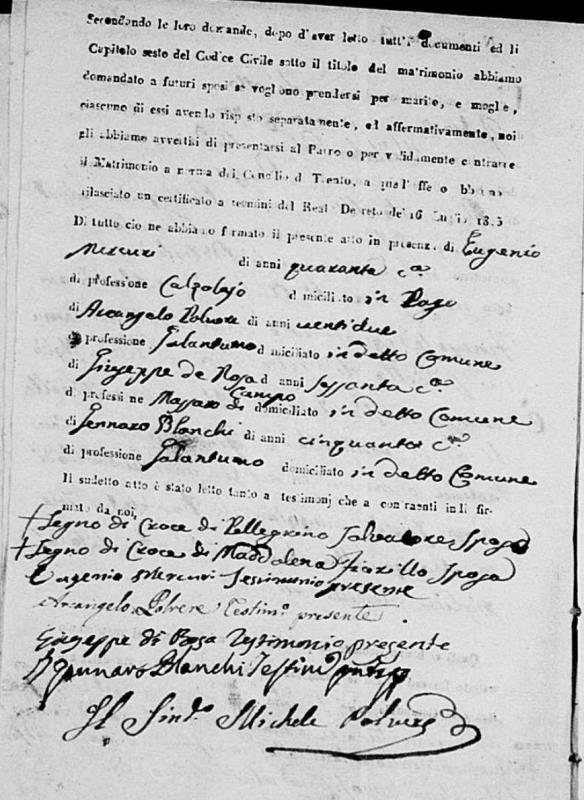 Secondando le loro domande, dopo d'aver letto tutt'i documenti ed il
Capitolo sesto del Codice Civile sotto il titolo del matrimonio abbiamo
domandato a futuri sposi se vogliono prendersi per marito, e moglie,
ciascuno di essi avendo risposto separatamente, ed affermativamente, noi
gli abbiamo avvertiti di presentarsi al Parroco per validamente contrarre
il Matrimonio a norma del Concilio di Trento, a qual'effe o bbiamo
rilasciato un certificato a termini del Real Decreto de' 16 Luglio 1815
Di tutto cio ne abbiamo formato il presente atto in presenza di Eugenio
Mercuri di anni quaranta c.a
di professione Calzolajo domiciliato in Pago
di Arcangelo Polvere di anni ventidue
professione Galantuomo domiciliato in detto Comune
di Giuseppe de Rosa d anni sessanta c.a
d professi ne Massaro di Campo domiciliato in detto Comune
di Gennaro Blanchi di anni cinquanta c.a
di professione Galantuomo domiciliato in detto Comune
Il sudetto atto è stato letto tanto a testimonj che a contraenti indi fir-
mato da noi,
+ Segno di Croce di Pellegrino Salvatore Sposo
+ Segno di Croce di Maddalena Fiorillo Sposa
Eugenio Mercuri Testimonio presente
Arcangelo Polvere Testim.o presente
Giuseppe di Rosa Testimonio presente
Gennaro Blanchi Testim.o
Il Sind.o Michele Polvere